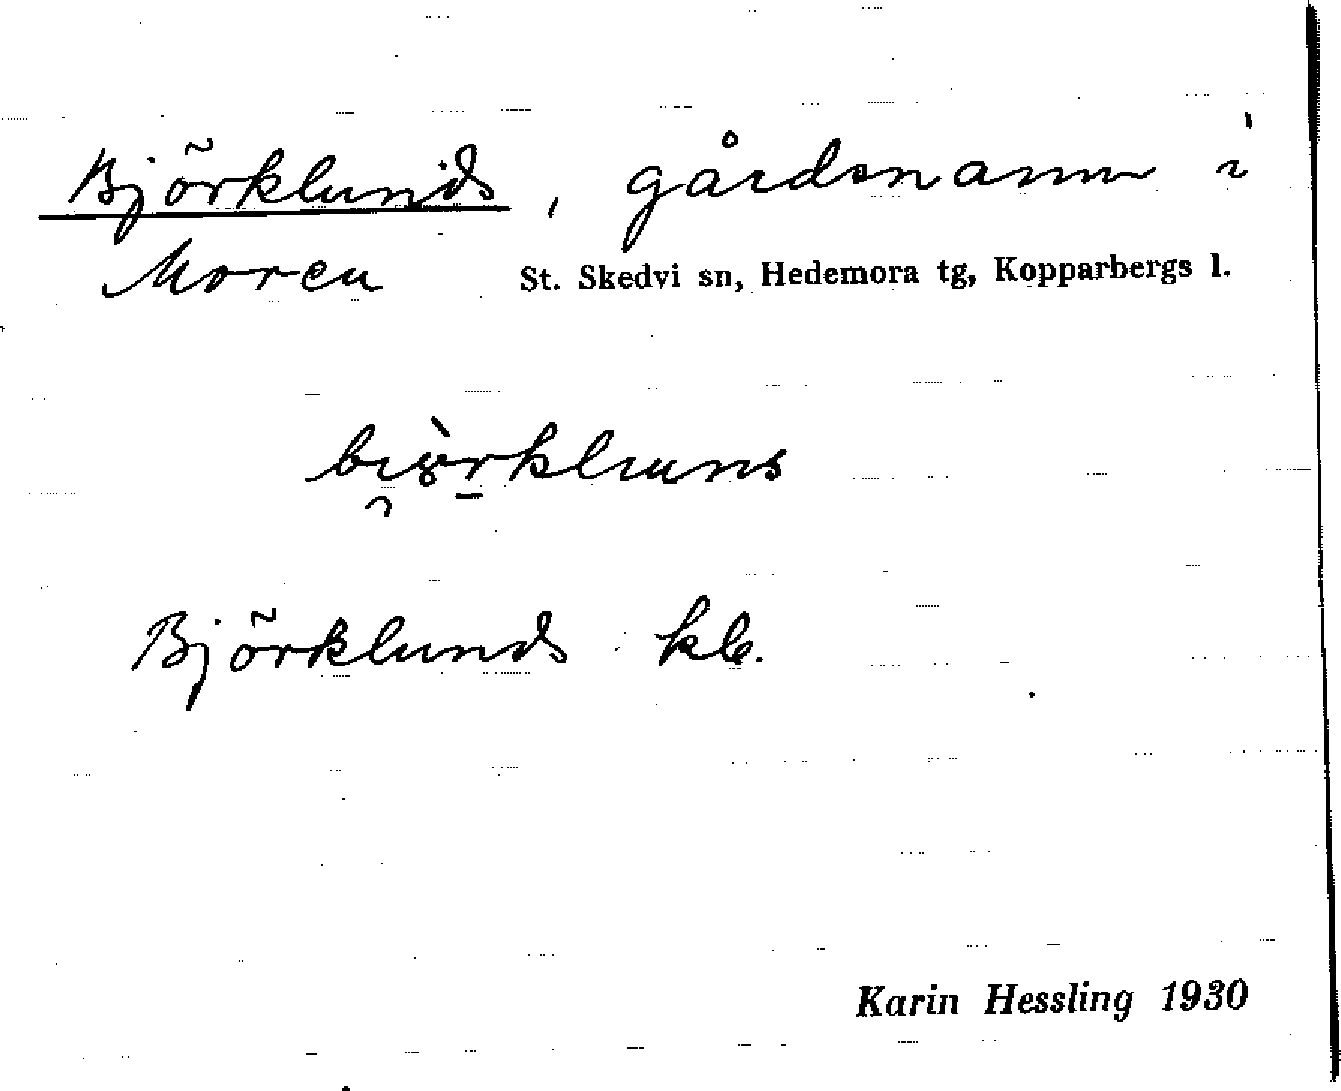 Björklunds, gårdsnamn i
Moren St. Skedvi sn, Hedemora tg, Kopparbergs l.
Björklunds klb.
Karin Hessling 1930